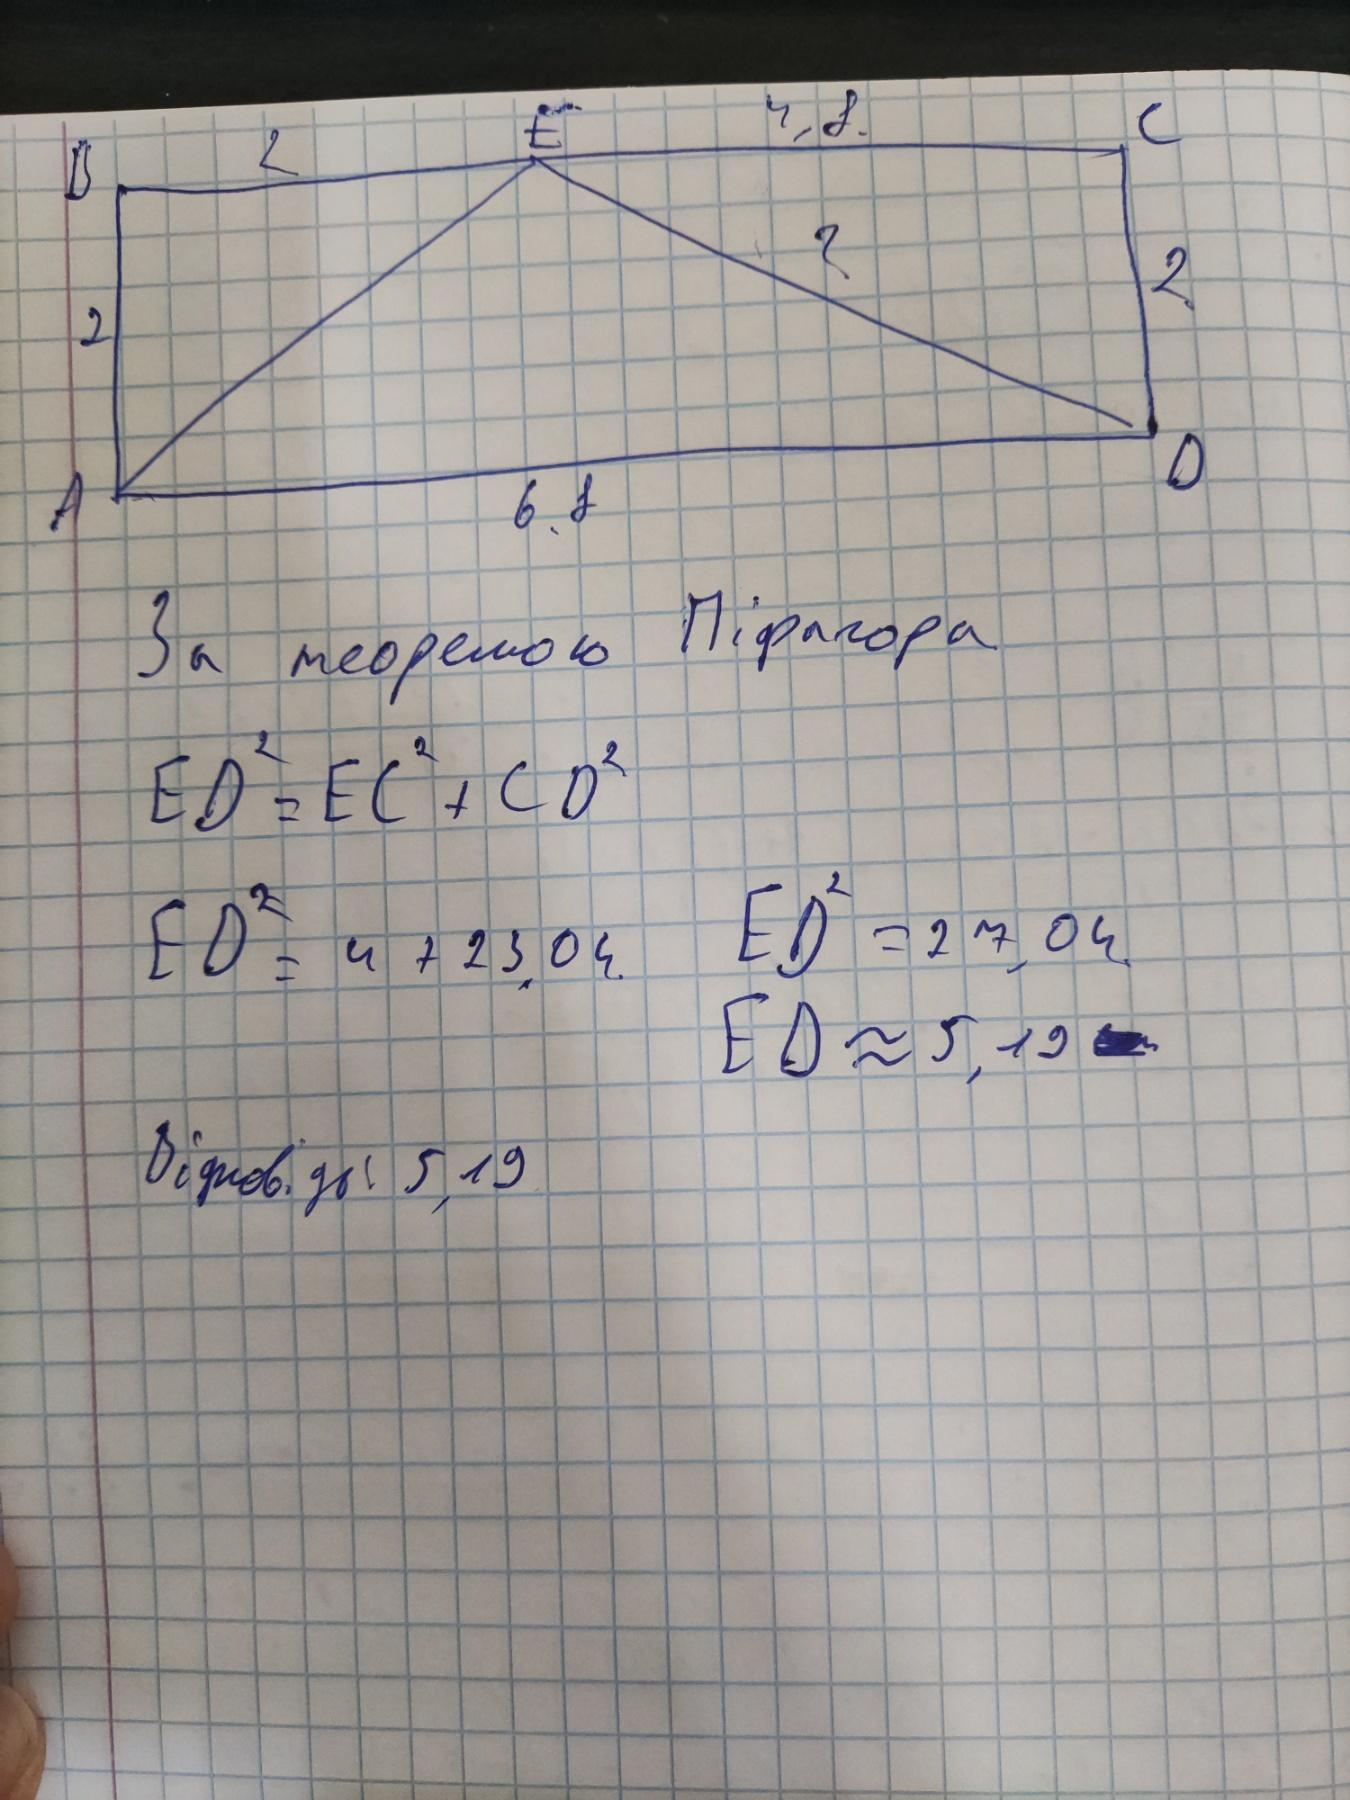 B 2 E 4,8. C
2 ? 2
A 6.8 D
За теоремою Піфагора
ED² = EC² + CD²
ED² = 4 + 23,04 ED² = 27,04
ED ≈ 5,19
Відповідь: 5,19